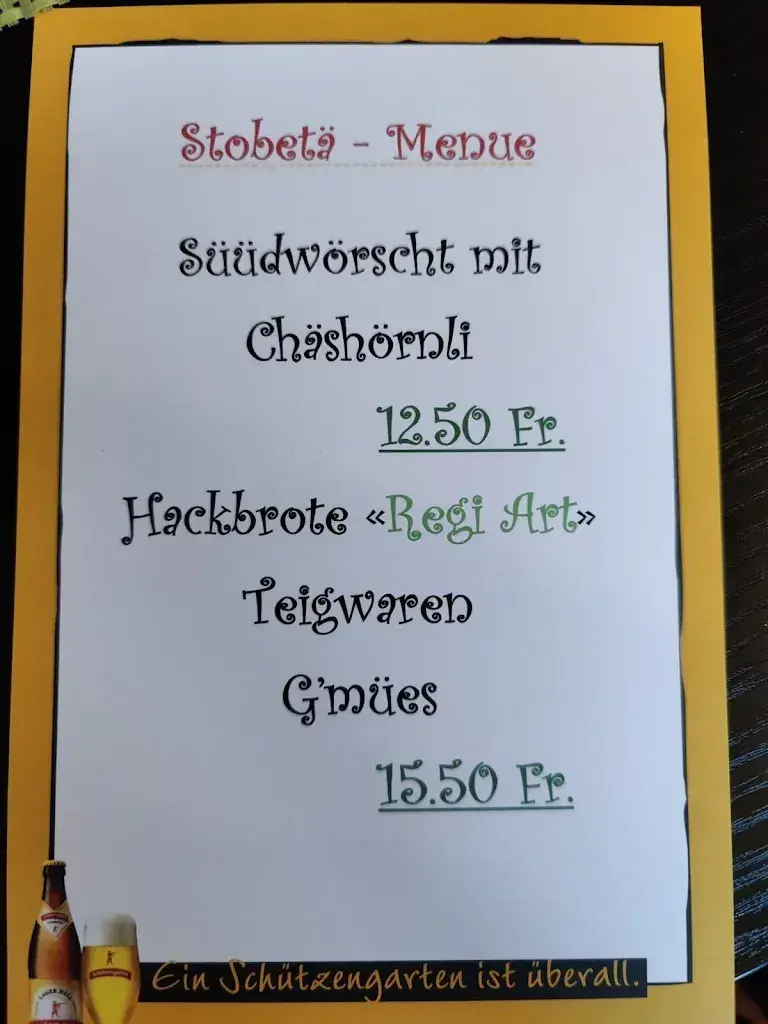 Stobetä - Menue
Süüdwörscht mit
Chäshörnli
12.50 Fr.
Hackbrote «Regi Art»
Teigwaren
G'mües
15.50 Fr.
Ein Schützengarten ist überall.
Schützengarten
LAGER HELL